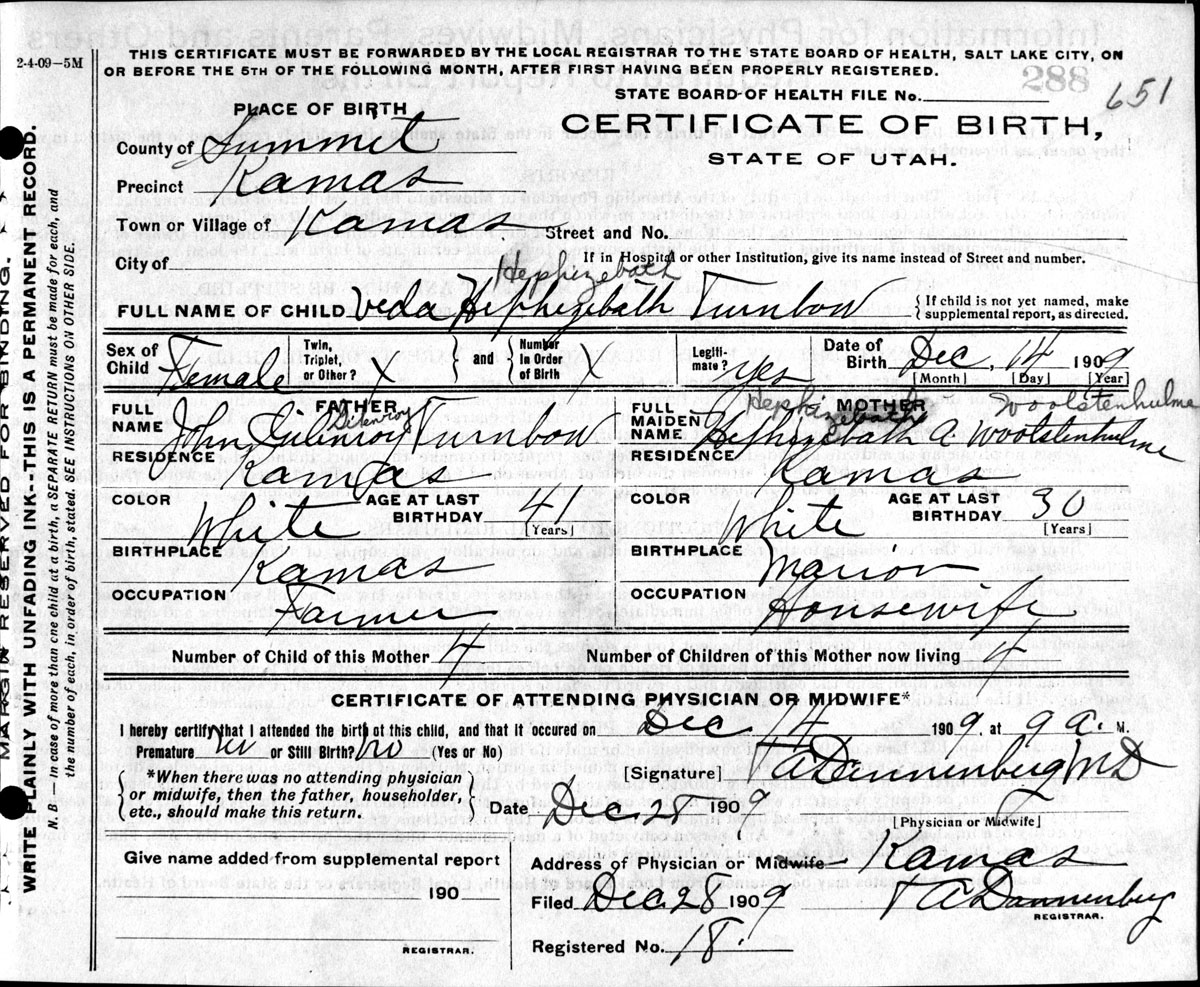 2-4-09—5M
THIS CERTIFICATE MUST BE FORWARDED BY THE LOCAL REGISTRAR TO THE STATE BOARD OF HEALTH, SALT LAKE CITY, ON
OR BEFORE THE 5TH OF THE FOLLOWING MONTH, AFTER FIRST HAVING BEEN PROPERLY REGISTERED.
STATE BOARD OF HEALTH FILE No. 288 651
PLACE OF BIRTH
CERTIFICATE OF BIRTH,
STATE OF UTAH.
County of Summit
Precinct Kamas
Town or Village of Kamas Street and No.
City of If in Hospital or other Institution, give its name instead of Street and number.
Hephizebath
FULL NAME OF CHILD Veda Hephizebath Turnbow { If child is not yet named, make
supplemental report, as directed.
Sex of Child Female Twin, Triplet, or Other? X } and { Number in Order of Birth X Legiti- mate? Yes Date of Birth Dec. 14 1909
[Month] [Day] [Year]
FATHER
FULL NAME John Gilenroy Turnbow
RESIDENCE Kamas
COLOR White AGE AT LAST BIRTHDAY 41 [Years]
BIRTHPLACE Kamas
OCCUPATION Farmer
MOTHER
Hephizebath Woolstenhulme
FULL MAIDEN NAME Hephizebath A. Woolstenhulme
RESIDENCE Kamas
COLOR White AGE AT LAST BIRTHDAY 30 [Years]
BIRTHPLACE Marion
OCCUPATION Housewife
Number of Child of this Mother 4 Number of Children of this Mother now living 4
CERTIFICATE OF ATTENDING PHYSICIAN OR MIDWIFE*
I hereby certify that I attended the birth of this child, and that it occured on Dec. 14 1909, at 9 a. M.
Premature no or Still Birth? no (Yes or No)
{ *When there was no attending physician
or midwife, then the father, householder,
etc., should make this return. }
[Signature] A Dannenberg MD
Date Dec. 28 1909
[Physician or Midwife]
Give name added from supplemental report
190
REGISTRAR.
Address of Physician or Midwife Kamas
Filed Dec. 28 1909 A Dannenberg
REGISTRAR.
Registered No. 18.
MARGIN RESERVED FOR BINDING.
WRITE PLAINLY WITH UNFADING INK--THIS IS A PERMANENT RECORD.
N. B.—In case of more than one child at a birth, a SEPARATE RETURN must be made for each, and
the number of each, in order of birth, stated. SEE INSTRUCTIONS ON OTHER SIDE.